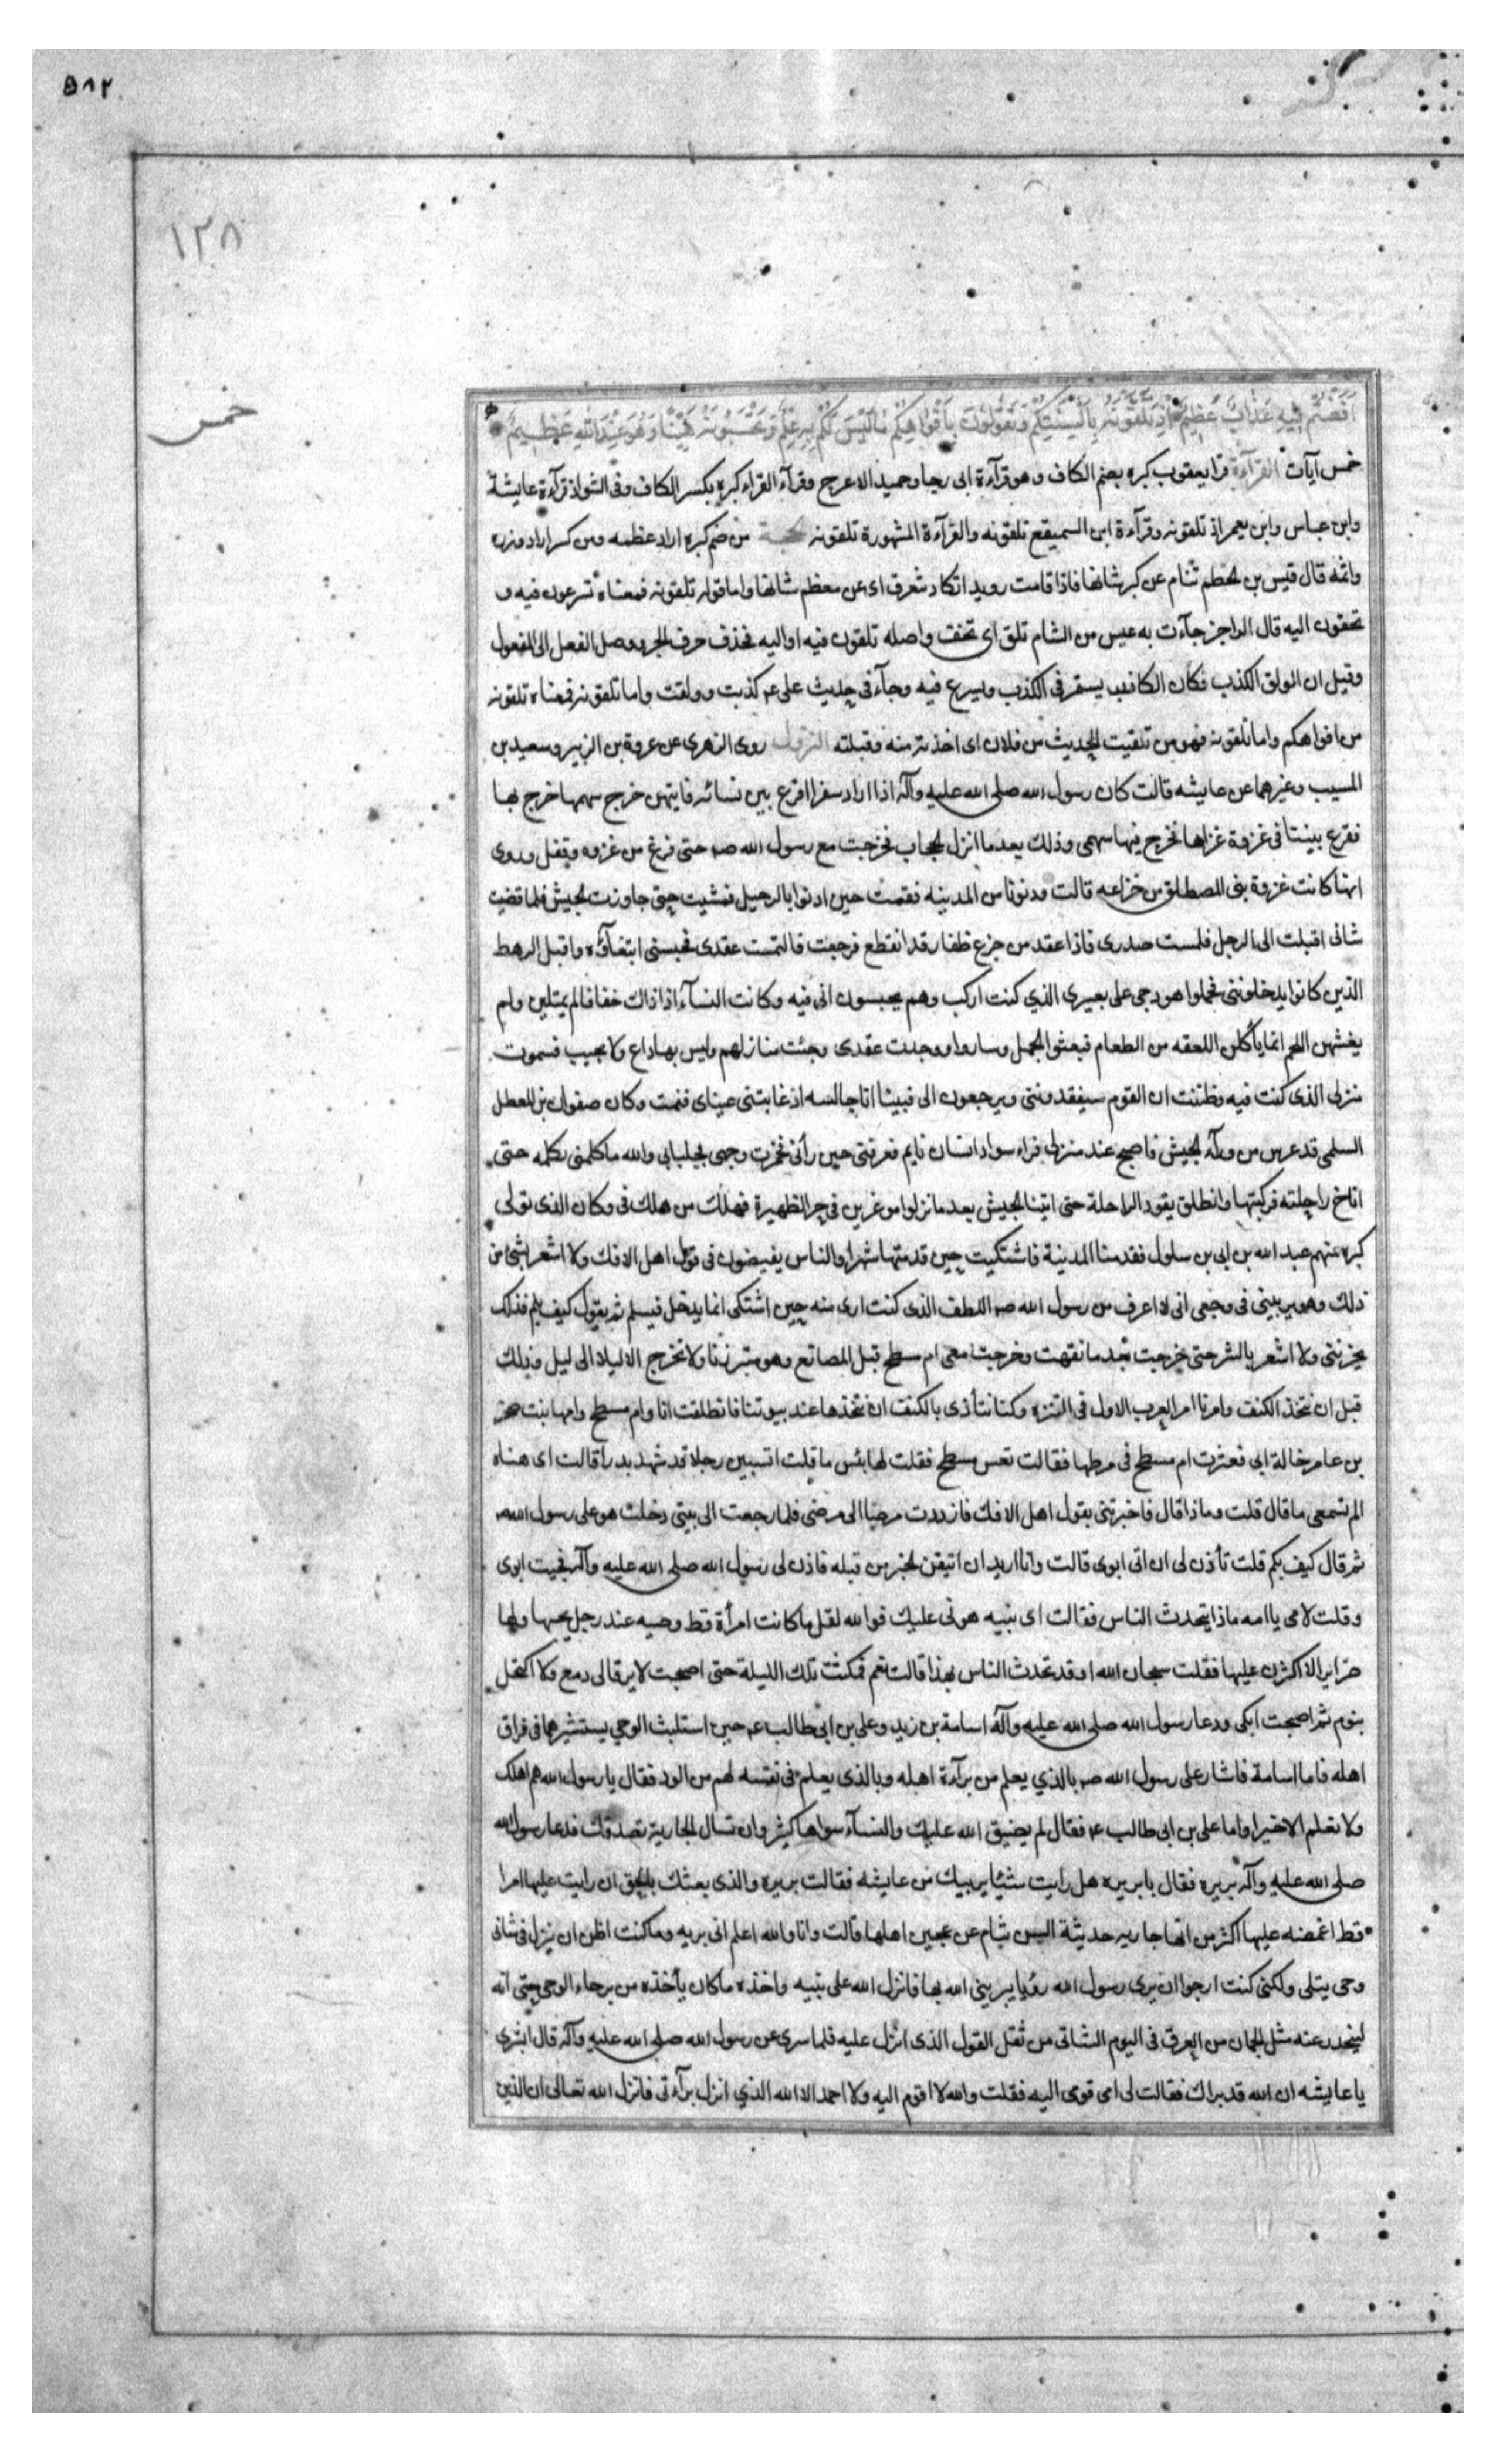 ٥٨٢
١٢٨
خمس
افضتم فيه عذاب عظيم اذ تلقونه بالسنتكم وتقولون بافواهكم ما ليس لكم به علم وتحسبونه هينا وهو عند الله عظيم
خمس آيات القرآءة قرا يعقوب كبره بضم الكاف وهو قرآءة ابى رجا وحميد الاعرج وقرآءة القراء كبره بكسر الكاف وفى الشواذ قرآءة عايشة
وابن عباس وابن يعمر اذ تلقونه وقرآءة ابن السميقع تلقونه والقرآءة المشهورة تلقونه الحجة من ضم كبره اراد عظمه ومن كسر اراد وزره
واثمه قال قيس بن لخطم تنام عن كبر شانها فاذا قامت رويدا تكاد تنغرف اى عن معظم شانها واما قوله تلقونه فمعناه تسرعون فيه و
تخفون اليه قال الراجز جآءت به عيس من الشام تلق اى تخف واصله تلقون فيه او اليه فحذف حرف الجر ووصل الفعل الى المفعول
وقيل ان الولق الكذب فكان الكاذب يستمر فى الكذب ويسرع فيه وجآء فى حديث على ع كذبت وولقت واما تلقونه فمعناه تلقونه
من افواهكم واما تلقونه فهو من تلقيت الحديث من فلان اى اخذته منه وقبلته النزول روى الزهرى عن عروة بن الزبير وسعيد بن
المسيب وغيرهما عن عايشه قالت كان رسول الله صلى الله عليه وآله اذا اراد سفرا اقرع بين نسائه فايتهن خرج سهمها خرج بها
فقرع بيننا فى غزوة غزاها فخرج فيها سهمى وذلك بعد ما انزل الحجاب فخرجت مع رسول الله صـ حتى فرغ من غزوه وقفل وروى
انها كانت غزوة بنى المصطلق من خزاعه قالت ودنونا من المدينه فقمت حين اذنوا بالرحيل فمشيت حتى جاوزت الجيش فلما قضيت
شانى اقبلت الى الرحل فلمست صدرى فاذا عقد من جزع ظفار قد انقطع فرجعت فالتمست عقدى فحبسنى ابتغآؤه واقبل الرهط
الذين كانوا يدخلوننى فحملوا هودجى على بعيرى الذي كنت اركب وهم يحسبون انى فيه وكانت النسآء اذ اذاك خفافا لم يمتلين ولم
يغشهن اللحم انما ياكلن اللعقه من الطعام فبعثوا الجمل وساروا ووجدت عقدى وجئت منازلهم وليس بها داع ولا مجيب فسموت
منزلى الذى كنت فيه وظننت ان القوم سيفقدوننى ويرجعون الى فبينا انا جالسه اذ غلبتنى عيناى فنمت وكان صفوان بن المعطل
السلمى قد عرس من ورآء الجيش فاصبح عند منزلى فراء سواد انسان نايم فعرفنى حين رأنى فخمرت وجهى بجلبابى والله ما كلمنى بكلمه حتى
اناخ راحلته فركبتها وانطلق يقود الراحلة حتى اتينا الجيش بعد ما نزلوا موغرين فى حر الظهيرة فهلك من هلك فى وكان الذى تولى
كبره منهم عبد الله بن ابى بن سلول فقدمنا المدينة فاشتكيت حين قدمتها شهرا والناس يفيضون فى قول اهل الافك ولا اشعر بشئ من
ذلك وهو يريبنى فى وجعى انى لا اعرف من رسول الله صـ اللطف الذى كنت ارى منه حين اشتكى انما يدخل فيسلم ثم يقول كيف تيكم فذلك
يحزننى ولا اشعر بالشر حتى خرجت بعد ما نقهت وخرجت معى ام مسطح قبل المصانع وهو متبرزنا ولا نخرج الا ليلا الى ليل وذلك
قبل ان نتخذ الكنف وامرنا امر العرب الاول فى التنزه وكنا نتأذى بالكنف ان نتخذها عند بيوتنا فانطلقت انا وام مسطح وامها بنت صخر
بن عامر خالة ابى فعثرت ام مسطح فى مرطها فقالت تعس مسطح فقلت لها بئس ما قلت اتسبين رجلا قد شهد بدرا قالت اى هنتاه
الم تسمعى ما قال قلت وماذا قال فاخبرتنى بقول اهل الافك فازددت مرضا الى مرضى فلما رجعت الى بيتى دخلت هو على رسول الله صـ
ثم قال كيف بكم قلت تأذن لى ان اتى ابوى قالت وانا اريد ان اتيقن الخبر من قبله فاذن لى رسول الله صلى الله عليه وآله فجيت ابوى
وقلت لامى يا امه ماذا يتحدث الناس فقالت اى بنيه هونى عليك فوالله لقل ما كانت امرأة قط وضيه عند رجل يحبها ولها
ضراير الا اكثرن عليها فقلت سبحان الله او قد تحدث الناس بهذا قالت نعم فمكثت تلك الليلة حتى اصبحت لا يرقا لى دمع ولا اكتحل
بنوم ثم اصبحت ابكى ودعا رسول الله صلى الله عليه وآله اسامة بن زيد وعلى بن ابى طالب ع حين استلبث الوحي يستشيرهما فى فراق
اهله فاما اسامة فاشار على رسول الله صـ بالذي يعلم من برآءة اهله وبالذى يعلم فى نفسه لهم من الود فقال يا رسول الله هم اهلك
ولا نعلم الا خيرا واما على بن ابى طالب ع فقال لم يضيق الله عليك والنسآء سواها كثير وان تسال الجارية تصدقك فدعا رسول الله
صلى الله عليه وآله بريره فقال يا بريره هل رايت شيئا يريبك من عايشه فقالت بريره والذى بعثك بالحق ان رايت عليها امرا
قط اغمضه عليها اكثر من انها جاريه حديثة السن تنام عن عجين اهلها قالت وانا والله اعلم انى بريه وما كنت اظن ان ينزل فى شانى
وحى يتلى ولكنى كنت ارجوا ان يرى رسول الله رؤيا يبريني الله بها فانزل الله على نبيه واخذه ما كان يأخذه من برحاء الوحى حتى انه
لينحدر عنه مثل الجمان من العرق فى اليوم الشاتى من ثقل القول الذى انزل عليه فلما سرى عن رسول الله صلى الله عليه وآله قال ابشرى
يا عايشه ان الله قد براك فقالت لى امى قومى اليه فقلت والله لا اقوم اليه ولا احمد الا الله الذي انزل برآءتى فانزل الله تعالى ان الذين